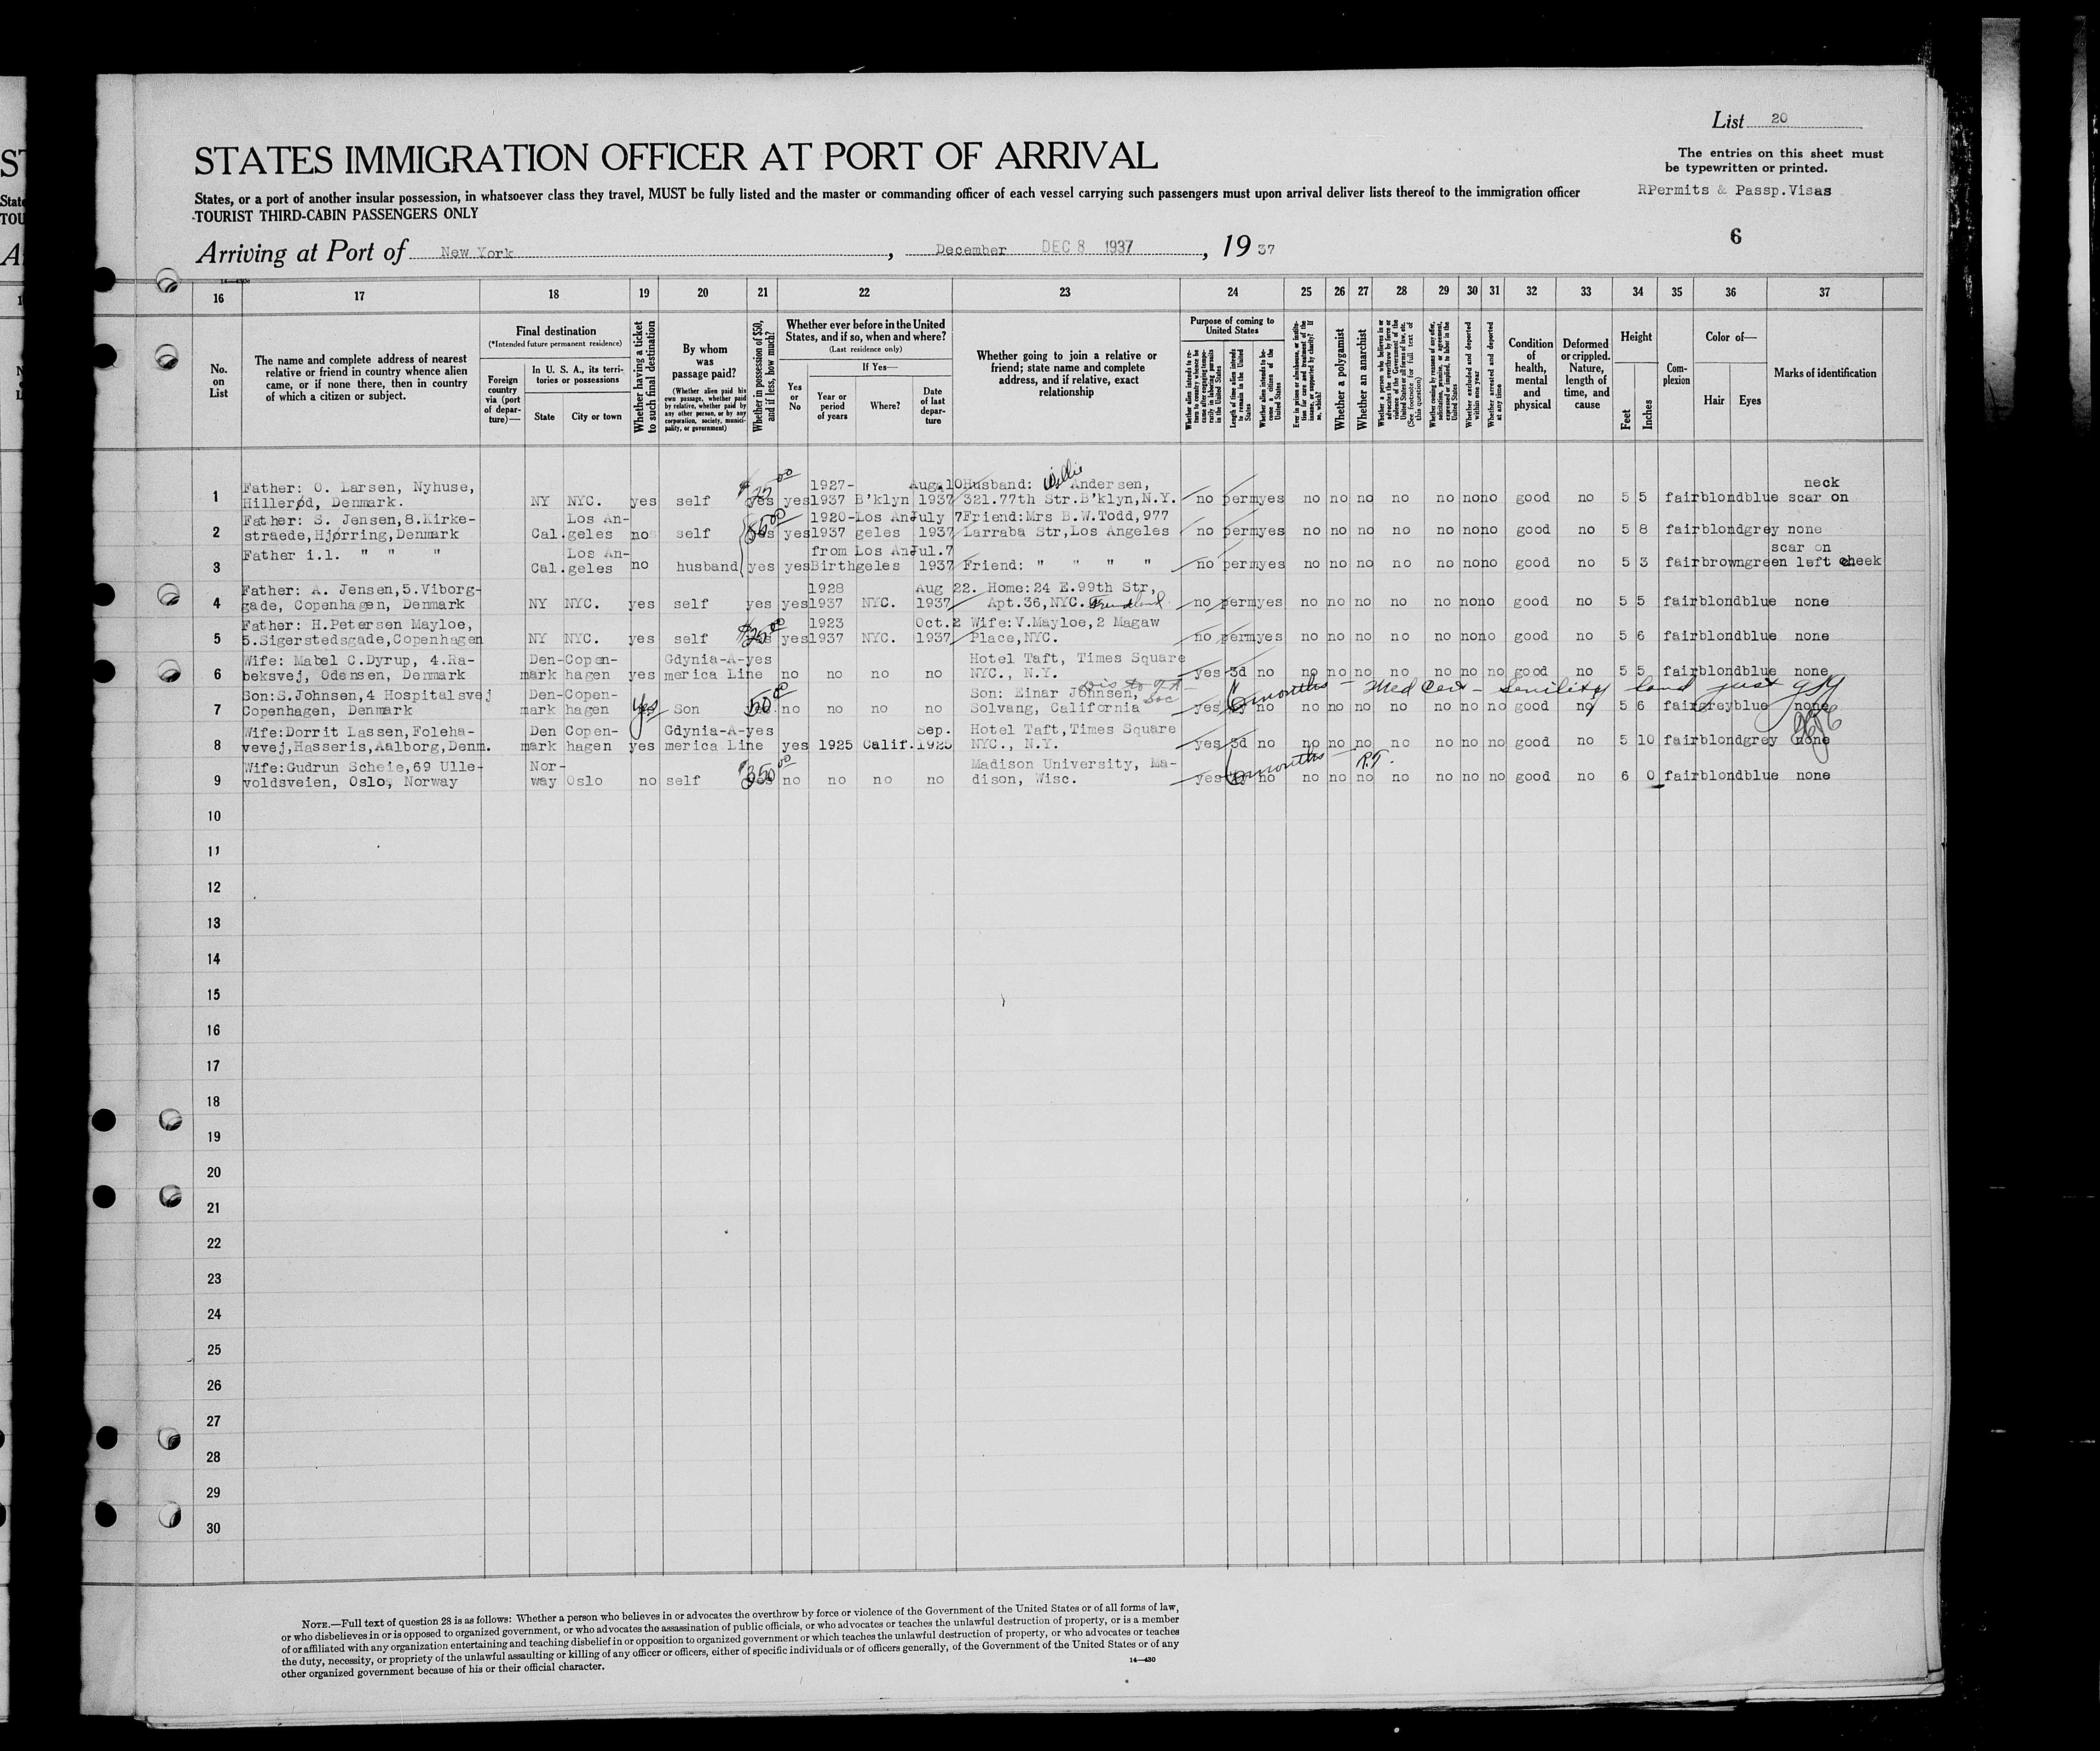 List 20
STATES IMMIGRATION OFFICER AT PORT OF ARRIVAL
The entries on this sheet must
be typewritten or printed.
States, or a port of another insular possession, in whatsoever class they travel, MUST be fully listed and the master or commanding officer of each vessel carrying such passengers must upon arrival deliver lists thereof to the immigration officer
RPermits & Passp.Visas
TOURIST THIRD-CABIN PASSENGERS ONLY
6
Arriving at Port of New York, December DEC 8 1937, 19 37
16 17 18 19 20 21 22 23 24 25 26 27 28 29 30 31 32 33 34 35 36 37
No. on List
The name and complete address of nearest
relative or friend in country whence alien
came, or if none there, then in country
of which a citizen or subject.
Final destination
(*Intended future permanent residence)
Foreign country via (port of departure)—
In U. S. A., its territories or possessions
State
City or town
Whether having a ticket to such final destination
By whom was passage paid?
(Whether alien paid his own passage, whether paid by relative, whether paid by any other person, or by any corporation, society, municipality, or government)
Whether in possession of $50, and if less, how much?
Whether ever before in the United States, and if so, when and where?
(Last residence only)
Yes or No
If Yes—
Year or period of years
Where?
Date of last departure
Whether going to join a relative or
friend; state name and complete
address, and if relative, exact
relationship
Purpose of coming to United States
Whether alien intends to return to country whence he came after engaging temporarily in laboring pursuits in the United States
Length of time alien intends to remain in the United States
Whether alien intends to become a citizen of the United States
Ever in prison or almshouse, or institution for care and treatment of the insane, or supported by charity? If so, which?
Whether a polygamist
Whether an anarchist
Whether a person who believes in or advocates the overthrow by force or violence of the Government of the United States or all forms of law, etc. (See footnote for full text of this question)
Whether coming by reason of any offer, solicitation, promise, or agreement, expressed or implied, to labor in the United States
Whether excluded and deported within one year
Whether arrested and deported at any time
Condition of health, mental and physical
Deformed or crippled. Nature, length of time, and cause
Height
Feet
Inches
Complexion
Color of—
Hair
Eyes
Marks of identification
1 Father: O. Larsen, Nyhuse, Hillerød, Denmark. NY NYC. yes self yes $25 00 yes 1927-1937 B'klyn Aug.10 1937 Husband: Willie Andersen, 321.77th Str.B'klyn,N.Y. no perm yes no no no no no no no good no 5 5 fair blond blue neck scar on
2 Father: S. Jensen,8.Kirkestraede,Hjørring,Denmark Cal. Los Angeles no self yes yes 1920-1937 Los Angeles July 7 1937 Friend:Mrs B.W.Todd,977 Larraba Str,Los Angeles no perm yes no no no no no no no good no 5 8 fair blond grey none
3 Father i.l. " " " Cal. Los Angeles no husband yes yes from Birth Los Angeles Jul.7 1937 Friend: " " " " no perm yes no no no no no no no good no 5 3 fair brown green scar on left cheek
4 Father: A. Jensen,5.Viborggade, Copenhagen, Denmark NY NYC. yes self yes yes 1928 1937 NYC. Aug 22. 1937 Home:24 E.99th Str, Apt.36,NYC. no perm yes no no no no no no no good no 5 5 fair blond blue none
5 Father: H.Petersen Mayloe, 5.Sigerstedsgade,Copenhagen NY NYC. yes self yes $25 00 yes 1923 1937 NYC. Oct.2 1937 Wife:V.Mayloe,2 Magaw Place,NYC. no perm yes no no no no no no no good no 5 6 fair blond blue none
6 Wife: Mabel C.Dyrup, 4.Rabeksvej, Odensen, Denmark Denmark Copenhagen yes Gdynia-America Line yes no no no no Hotel Taft, Times Square NYC., N.Y. yes 3d no no no no no no no no good no 5 5 fair blond blue none
7 Son:S.Johnsen,4 Hospitalsvej Copenhagen, Denmark Denmark Copenhagen yes Son 50 00 no no no no Son: Einar Johnsen, Solvang, California yes 6 months no no no no no no no no good no 5 6 fair grey blue none
Med Cert - senility
8 Wife:Dorrit Lassen,Folehavevej,Hasseris,Aalborg,Denm. Den mark Copenhagen yes Gdynia-America Line yes yes 1925 Calif. Sep. 1925 Hotel Taft,Times Square NYC., N.Y. yes 3d no no no no no no no no good no 5 10 fair blond grey none
9 Wife:Gudrun Scheie,69 Ullevoldsveien, Oslo, Norway Norway Oslo no self $350 00 no no no no Madison University, Madison, Wisc. yes 6 months no no no no no no no no good no 6 0 fair blond blue none
10
11
12
13
14
15
16
17
18
19
20
21
22
23
24
25
26
27
28
29
30
NOTE.—Full text of question 28 is as follows: Whether a person who believes in or advocates the overthrow by force or violence of the Government of the United States or of all forms of law,
or who disbelieves in or is opposed to organized government, or who advocates the assassination of public officials, or who advocates or teaches the unlawful destruction of property, or is a member
of or affiliated with any organization entertaining and teaching disbelief in or opposition to organized government or which teaches the unlawful destruction of property, or who advocates or teaches
the duty, necessity, or propriety of the unlawful assaulting or killing of any officer or officers, either of specific individuals or of officers generally, of the Government of the United States or of any
other organized government because of his or their official character.
14—430